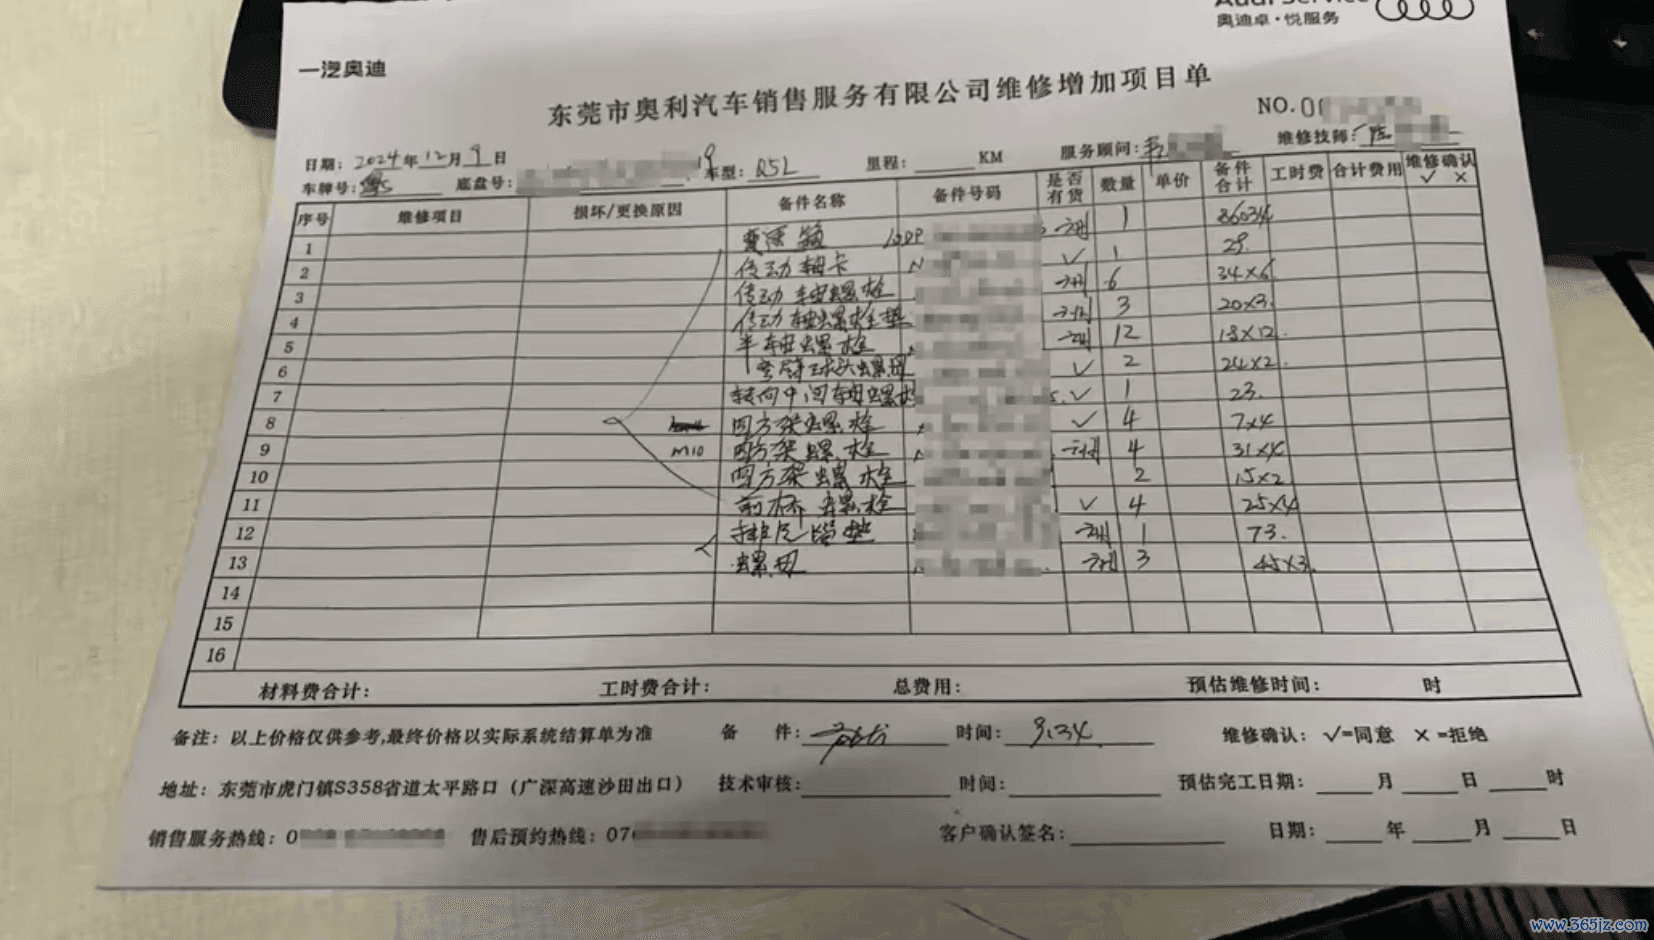 Audi Service
奥迪卓·悦服务
一汽奥迪
东莞市奥利汽车销售服务有限公司维修增加项目单
NO.0
日期: 2024年12月9日
服务顾问:
维修技师:
车牌号: 粤 底盘号: 9 车型: Q5L 里程: KM
序号 维修项目 损坏/更换原因 备件名称 备件号码 是否有货 数量 单价 备件合计 工时费 合计费用 维修确认 ✓ ×
1 变速箱 1 86034
2 传动轴卡 N ✓ 1 29.
3 传动轴螺栓 6 34×6
4 传动轴螺栓垫 3 20×3.
5 半轴螺栓 12 18×12.
6 弯臂球头螺母 ✓ 2 24×2.
7 转向中间轴螺栓 ✓ 1 23.
8 四方架螺栓 ✓ 4 7×4
9 M10 四方架螺栓 4 31×4
10 四方架螺栓 2 15×2
11 前桥螺栓 ✓ 4 25×4
12 排气管垫 1 73.
13 螺母 3 45×3.
14
15
16
材料费合计: 工时费合计: 总费用: 预估维修时间: 时
备注: 以上价格仅供参考,最终价格以实际系统结算单为准 备 件: 时间: 9.34 维修确认: ✓=同意 ×=拒绝
地址: 东莞市虎门镇S358省道太平路口（广深高速沙田出口） 技术审核: 时间: 预估完工日期: 月 日 时
销售服务热线: 0 售后预约热线: 07 客户确认签名: 日期: 年 月 日
www.365jz.com